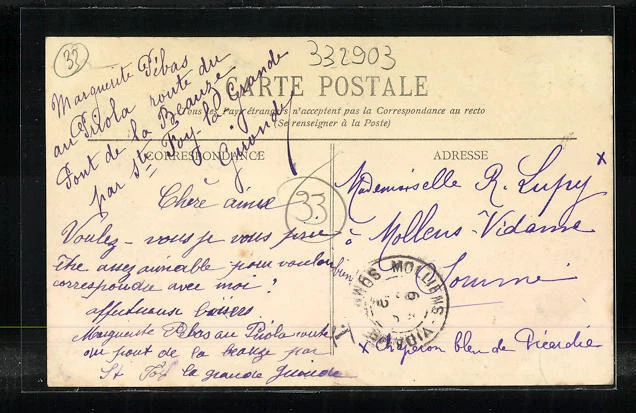 33
332903
Marguerite Pébas
au Priola route du
Pont de la Beauze
par Ste Foy-la Grande
Gironde
CARTE POSTALE
Tous les Pays étrangers n'acceptent pas la Correspondance au recto
(Se renseigner à la Poste)
CORRESPONDANCE
ADRESSE
33
Chère amie
Voulez-vous je vous prie
être assez aimable pour vouloir bien
correspondre avec moi ?
affectueux baisers
Marguerite Pébas au Priola route
du pont de la beauze par
St Foy la grande Gironde
Mademoiselle R. Lupy x
à Mollens-Vidame
Somme
MOLLIENS VIDAME
x Chaperon bleu de Picardie